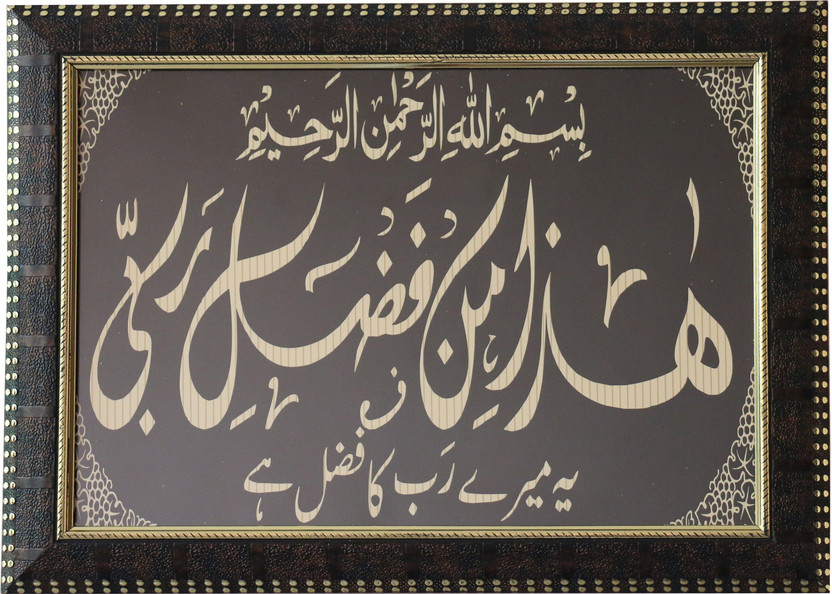 بِسْمِ اللهِ الرَّحْمٰنِ الرَّحِيْمِ
هٰذَا مِنْ فَضْلِ رَبِّی
یہ میرے رَب کا فضل ہے